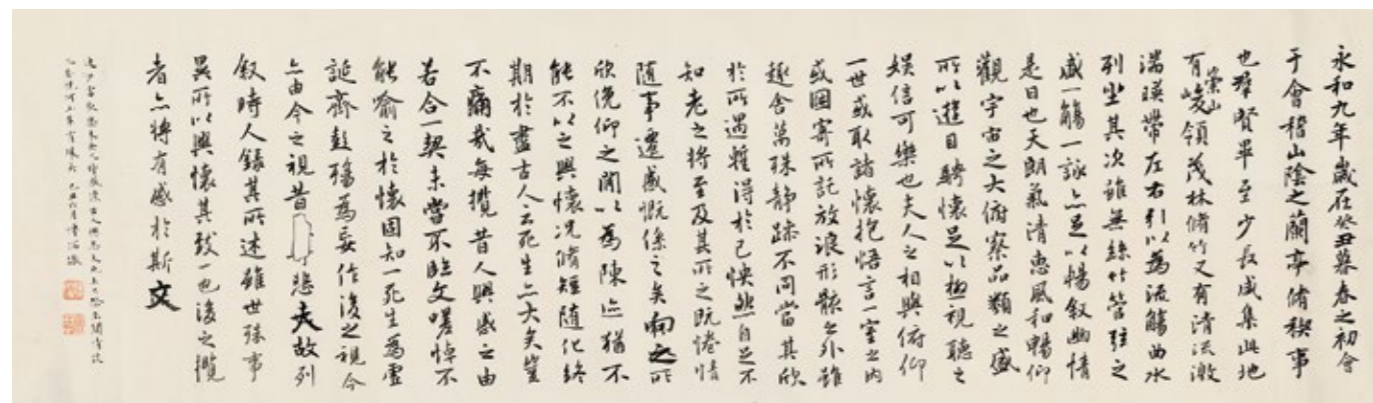 永和九年歲在癸丑暮春之初會
于會稽山陰之蘭亭脩稧事
也羣賢畢至少長咸集此地
有崇山峻領茂林脩竹又有清流激
湍暎帶左右引以為流觴曲水
列坐其次雖無絲竹管弦之
盛一觴一詠亦足以暢叙幽情
是日也天朗氣清惠風和暢仰
觀宇宙之大俯察品類之盛
所以遊目騁懷足以極視聽之
娛信可樂也夫人之相與俯仰
一世或取諸懷抱悟言一室之內
或因寄所託放浪形骸之外雖
趣舍萬殊靜躁不同當其欣
於所遇暫得於己怏然自足不
知老之將至及其所之既惓情
隨事遷感慨係之矣向之所
欣俛仰之閒以為陳迹猶不
能不以之興懷況脩短隨化終
期於盡古人云死生亦大矣豈
不痛哉每攬昔人興感之由
若合一契未嘗不臨文嗟悼不
能喻之於懷固知一死生為虛
誕齊彭殤為妄作後之視今
亦由今之視昔悲夫故列
叙時人錄其所述雖世殊事
異所以興懷其致一也後之攬
者亦將有感於斯文